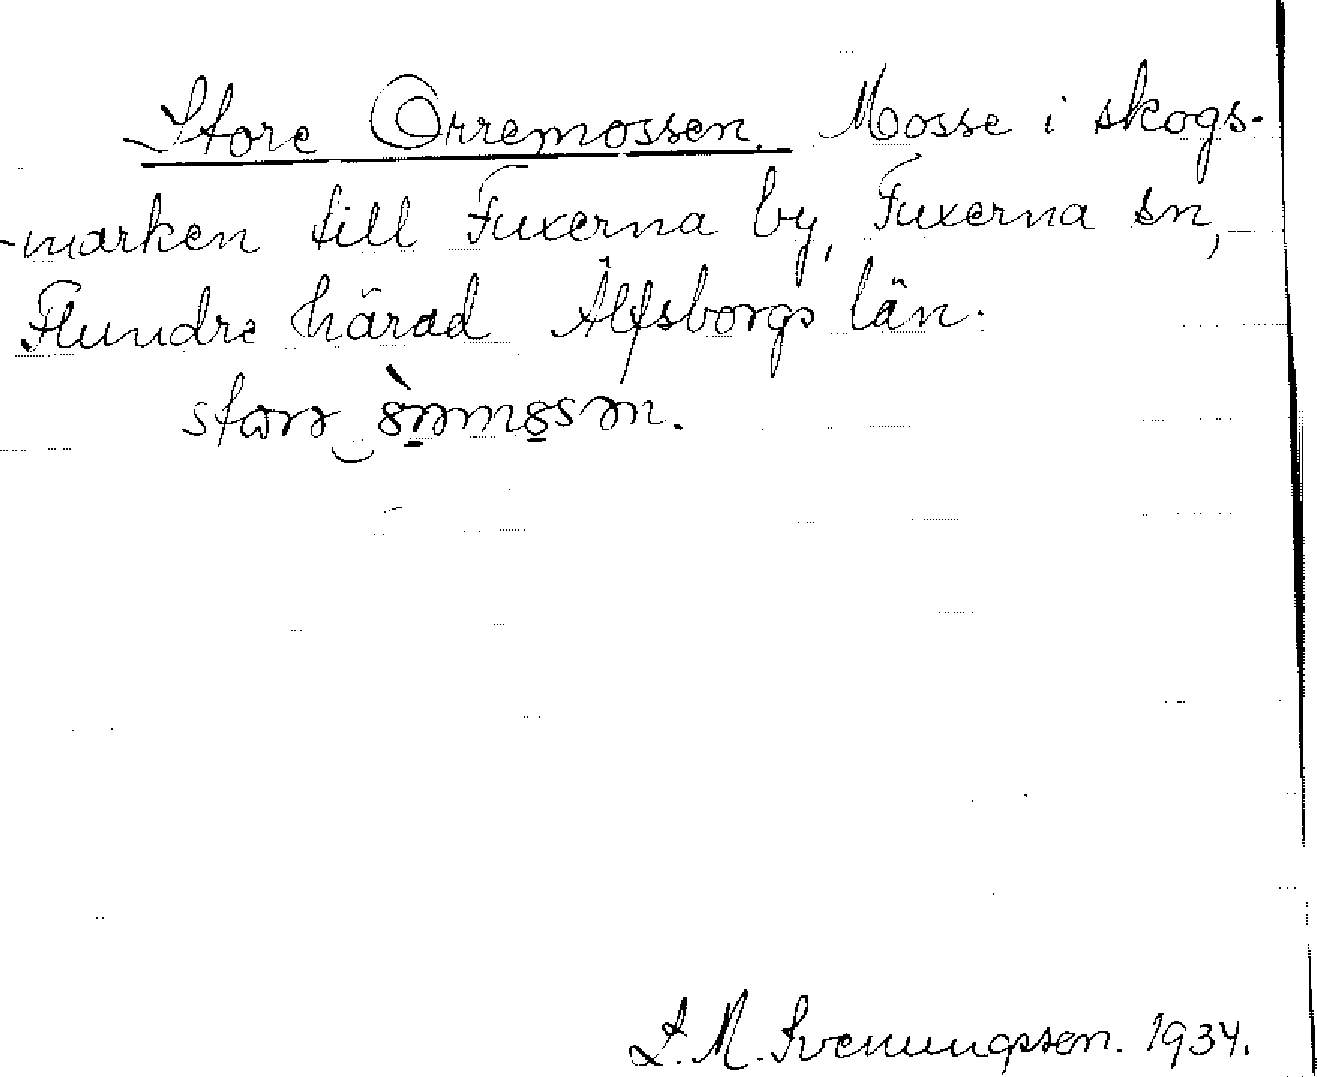 Store Orremossen. Mosse i skogs-
-marken till Fuxerna by, Fuxerna sn,
Flundre härad Älfsborgs län.
S. M. Svenungssen. 1934.